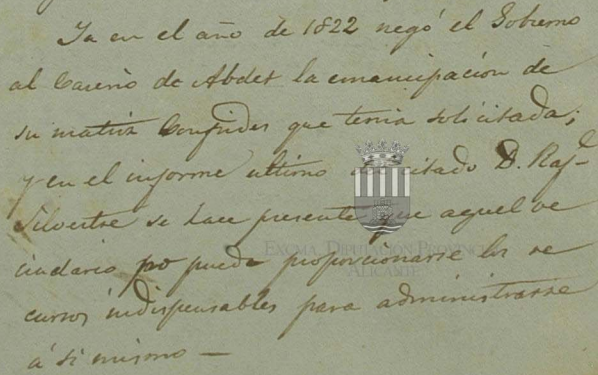 Ya en el año de 1822 negó el Gobierno
al Caserio de Abdet la emancipación de
su matriz Confrides que tenia solicitada;
y en el informe ultimo del citado D. Raf.
Silvestre se hace presente que aquel ve
cindario no puede proporcionarse los re
cursos indispensables para administrarse
á si mismo —
EXCMA. DIPUTACION PROVINCIAL
ALICANTE